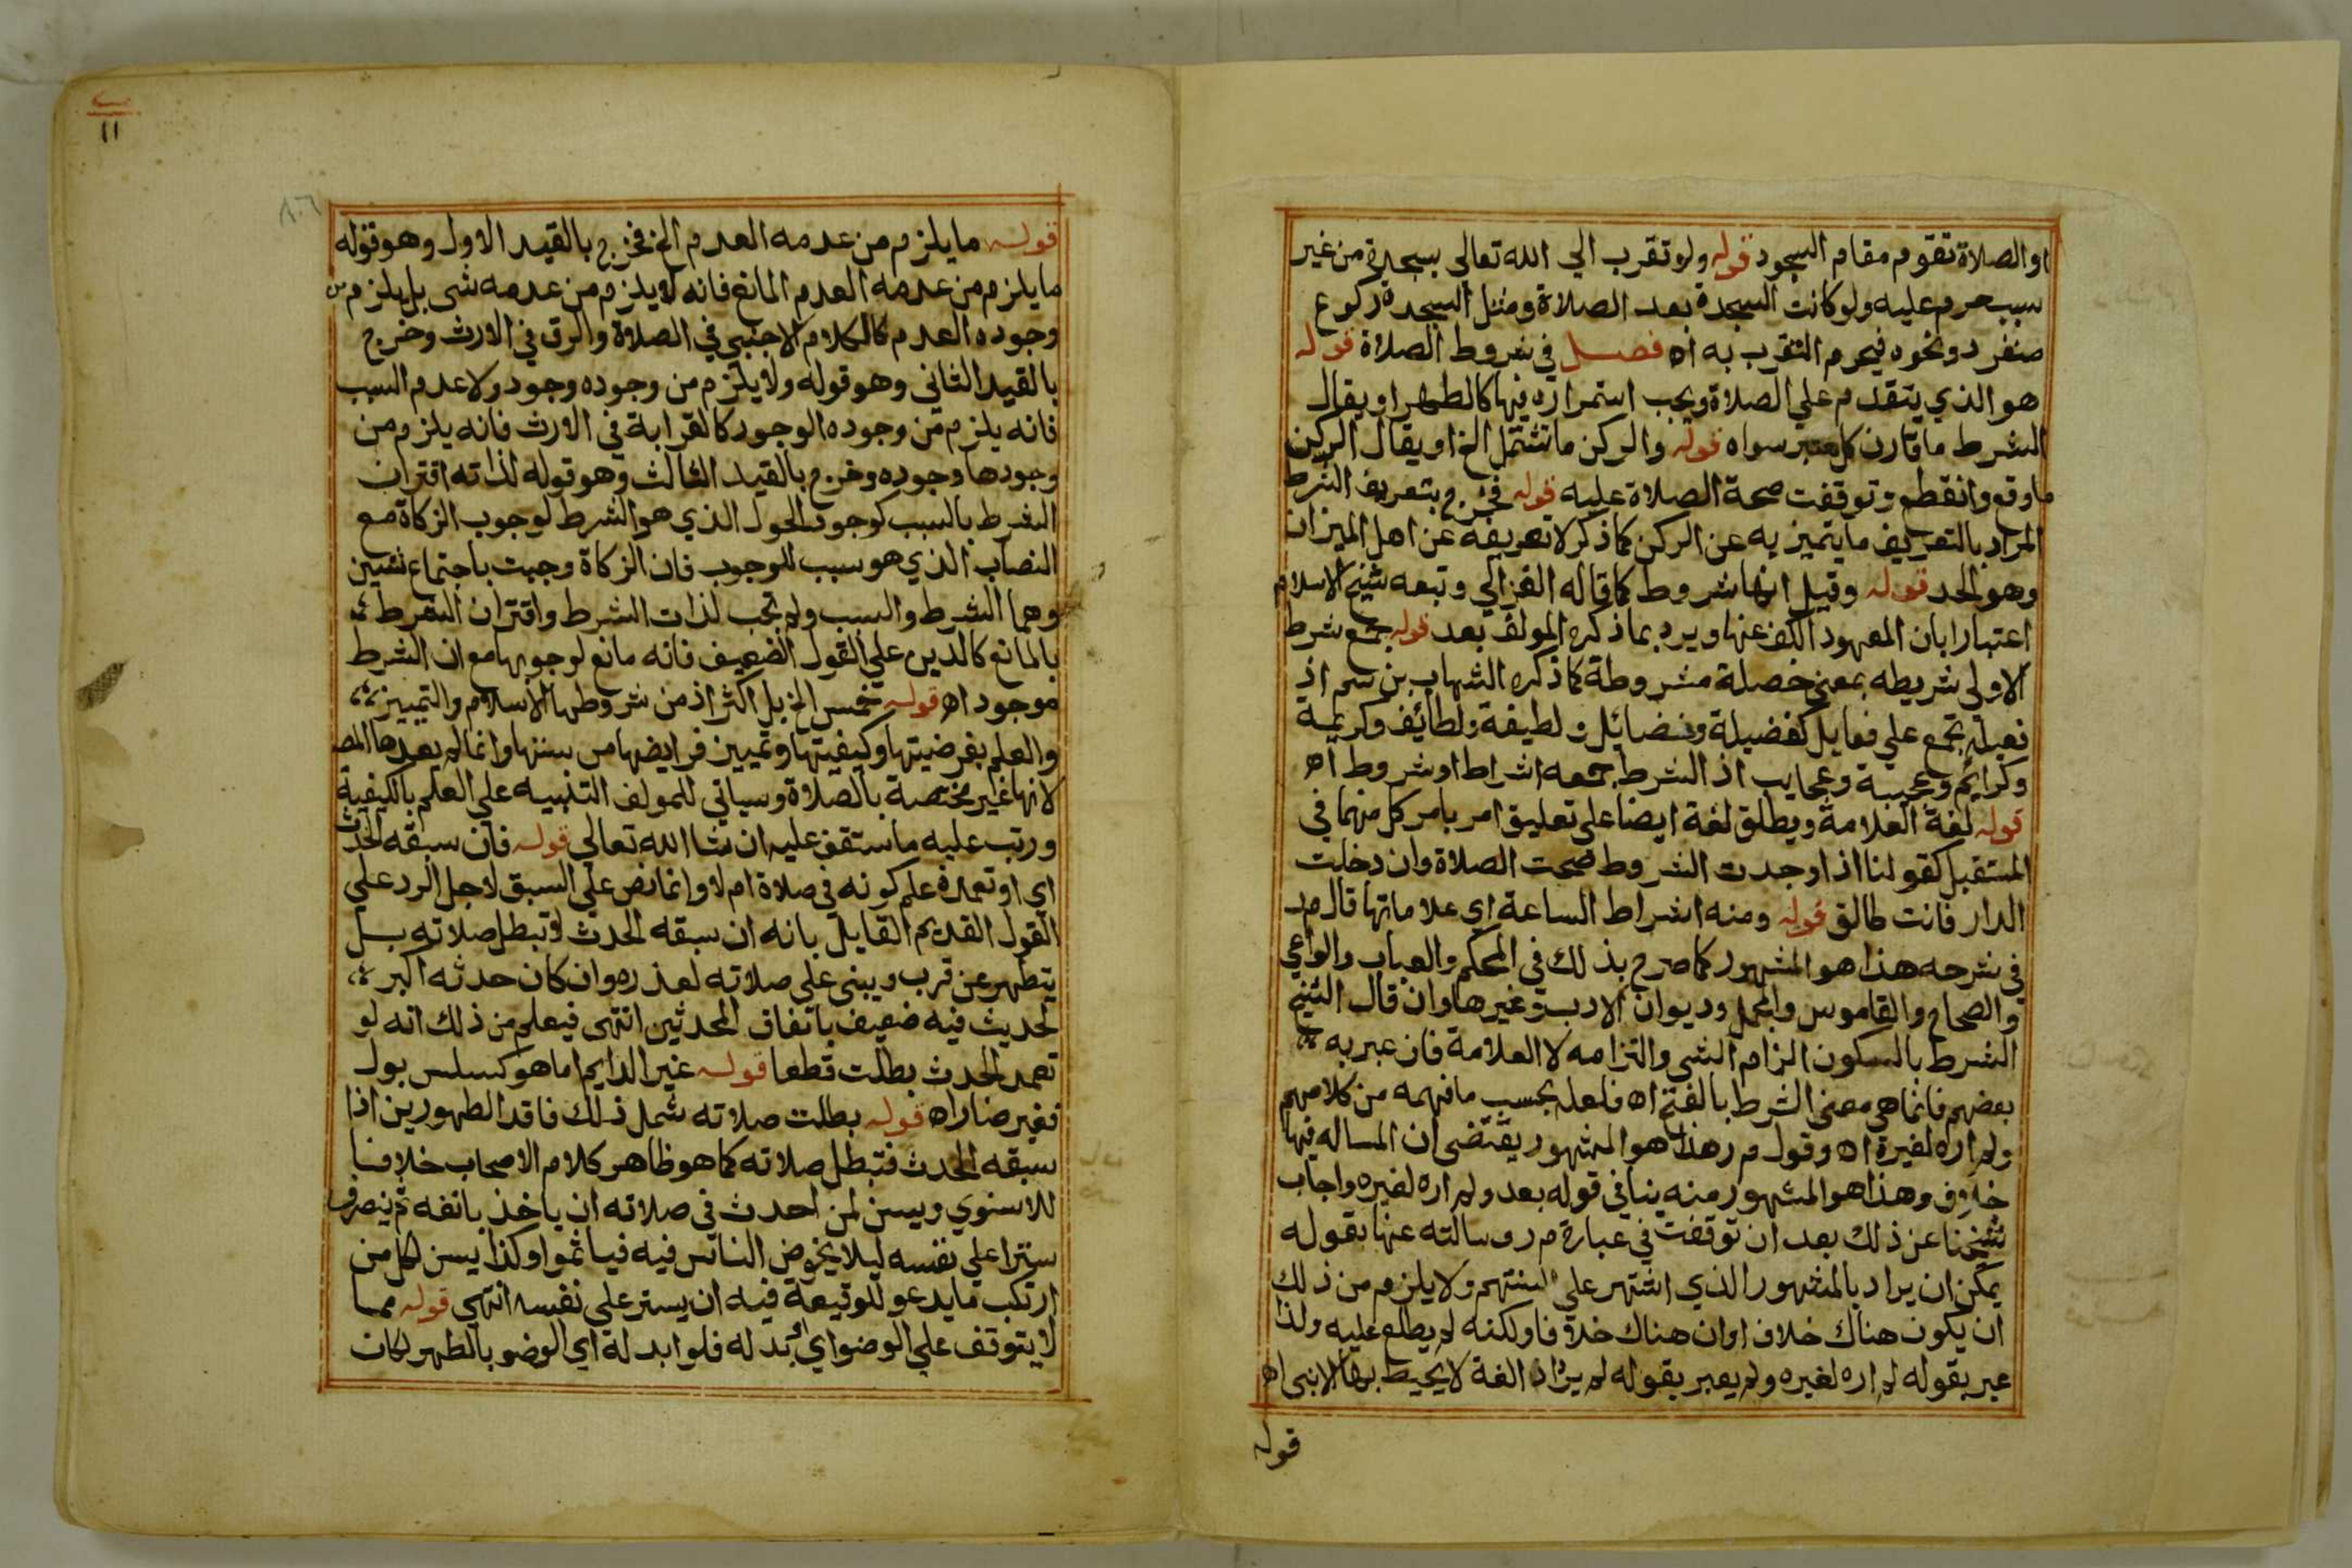 او الصلاة تقوم مقام السجود قوله ولو تقرب الي الله تعالي بسجدة من غير
سبب حرم عليه ولو كانت السجدة بعد الصلاة ومثل السجدة ركوع
منفرد ونحوه فيحرم التقرب به اه فصل في شروط الصلاة قوله
هو الذي يتقدم علي الصلاة ويجب استمراره فيها كالطهر او يقال
الشرط ما قارن كل معتبر سواه قوله والركن ما تشتمل الخ او يقال الركن
ما وقع وانقطع وتوقفت صحة الصلاة عليه قوله فخرج بتعريف الشرط
المراد بالتعريف ما يتميز به عن الركن كما ذكر لا تعريفه عن اهل الميزان
وهو الحد قوله وقيل انها شروط كما قاله الغزالي وتبعه شيخ الاسلام
اعتبارا بان المعهود الكف عنها ويرد بما ذكره المولف بعد قوله جمع شرط
الاولى شريطه بمعنى خصلة مشروطة كما ذكره الشهاب بن سم اذ
فعيلة تجمع علي فعايل كفضيلة وفضائل ولطيفة ولطائف وكريمة
وكرايم وعجيبة وعجايب اذ الشرط جمعه اشراط او شروط اه
قوله لغة العلامة ويطلق لغة ايضا علي تعليق امر بامر كل منهما في
المستقبل كقولنا اذا وجدت الشروط صحت الصلاة وان دخلت
الدار فانت طالق قوله ومنه اشراط الساعة اي علاماتها قال مر
في شرحه هذا هو المشهور كما صرح بذلك في المحكم والعباب والواعي
والصحاح والقاموس والمجمل وديوان الادب وغيرها وان قال الشيخ
الشرط بالسكون الزام الشي والتزامه لا العلامة فان عبر به
بعضهم فانما هي معنى الشرط بالفتح اه فلعله بحسب ما فهمه من كلامهم
ولم اره لغيره اه وقول م ر هذا هو المشهور يقتضى ان المساله فيها
خلاف وهذا هو المشهور منه ينافي قوله بعد ولم اره لغيره واجاب
شيخنا عن ذلك بعد ان توقفت في عبارة م ر وسالته عنها بقوله
يمكن ان يراد بالمشهور الذي اشتهر علي السنتهم ولا يلزم من ذلك
ان يكون هناك خلاف او ان هناك خلافا ولكنه لم يطلع عليه ولذا
عبر بقوله لم اره لغيره ولم يعبر بقوله لم يزاد الغة لا يحيط بها الا نبي اه
قوله
١١
٨٠٦
قوله ما يلزم من عدمه العدم الخ فخرج بالقيد الاول وهو قوله
ما يلزم من عدمه العدم المانع فانه لا يلزم من عدمه شى بل يلزم من
وجوده العدم كالكلام الاجنبي في الصلاة والرق في الارث وخرج
بالقيد الثاني وهو قوله ولا يلزم من وجوده وجود ولا عدم السبب
فانه يلزم من وجوده الوجود كالقرابة في الارث فانه يلزم من
وجودها وجوده وخرج بالقيد الثالث وهو قوله لذاته اقتران
الشرط بالسبب كوجود الحول الذي هو الشرط لوجوب الزكاة مع
النصاب الذي هو سبب للوجوب فان الزكاة وجبت باجتماع شيين
وهما الشرط والسبب ولم تجب لذات الشرط واقتران الشرط
بالمانع كالدين علي القول الضعيف فانه مانع لوجوبها مع ان الشرط
موجود اه قوله خمس الخ بل اكثر اذ من شروطها الاسلام والتمييز
والعلم بفرضيتها وكيفيتها وتمييز فرايضها من سننها وانما لم يعدها المص
لانها غير مختصة بالصلاة وسياتي للمولف التنبيه علي العلم بالكيفية
ورتب عليه ما ستقف عليه ان شا الله تعالي قوله فان سبقه الحدث
اي او تعمده علم كونه في صلاة ام لا وانما نص علي السبق لاجل الرد علي
القول القديم القايل بانه ان سبقه الحدث لا تبطل صلاته بل
يتطهر عن قرب ويبنى علي صلاته لعذره وان كان حدثه اكبر
لحديث فيه ضعيف باتفاق المحدثين انتهى فيعلم من ذلك انه لو
تعمد الحدث بطلت قطعا قوله غير الدايم اما هو كسلس بول
فغير ضار اه قوله بطلت صلاته شمل ذلك فاقد الطهورين اذا
سبقه الحدث فتبطل صلاته كما هو ظاهر كلام الاصحاب خلافا
للاسنوي ويسن لمن احدث في صلاته ان ياخذ بانفه ثم ينصرف
سترا علي نفسه ليلا يخوض الناس فيه فياثموا وكذا يسن لكل من
ارتكب ما يدعو للوقيعة فيه ان يستر علي نفسه انتهي قوله مما
لا يتوقف علي الوضو اي او بدله فلو ابدله اي الوضو بالطهر لكان